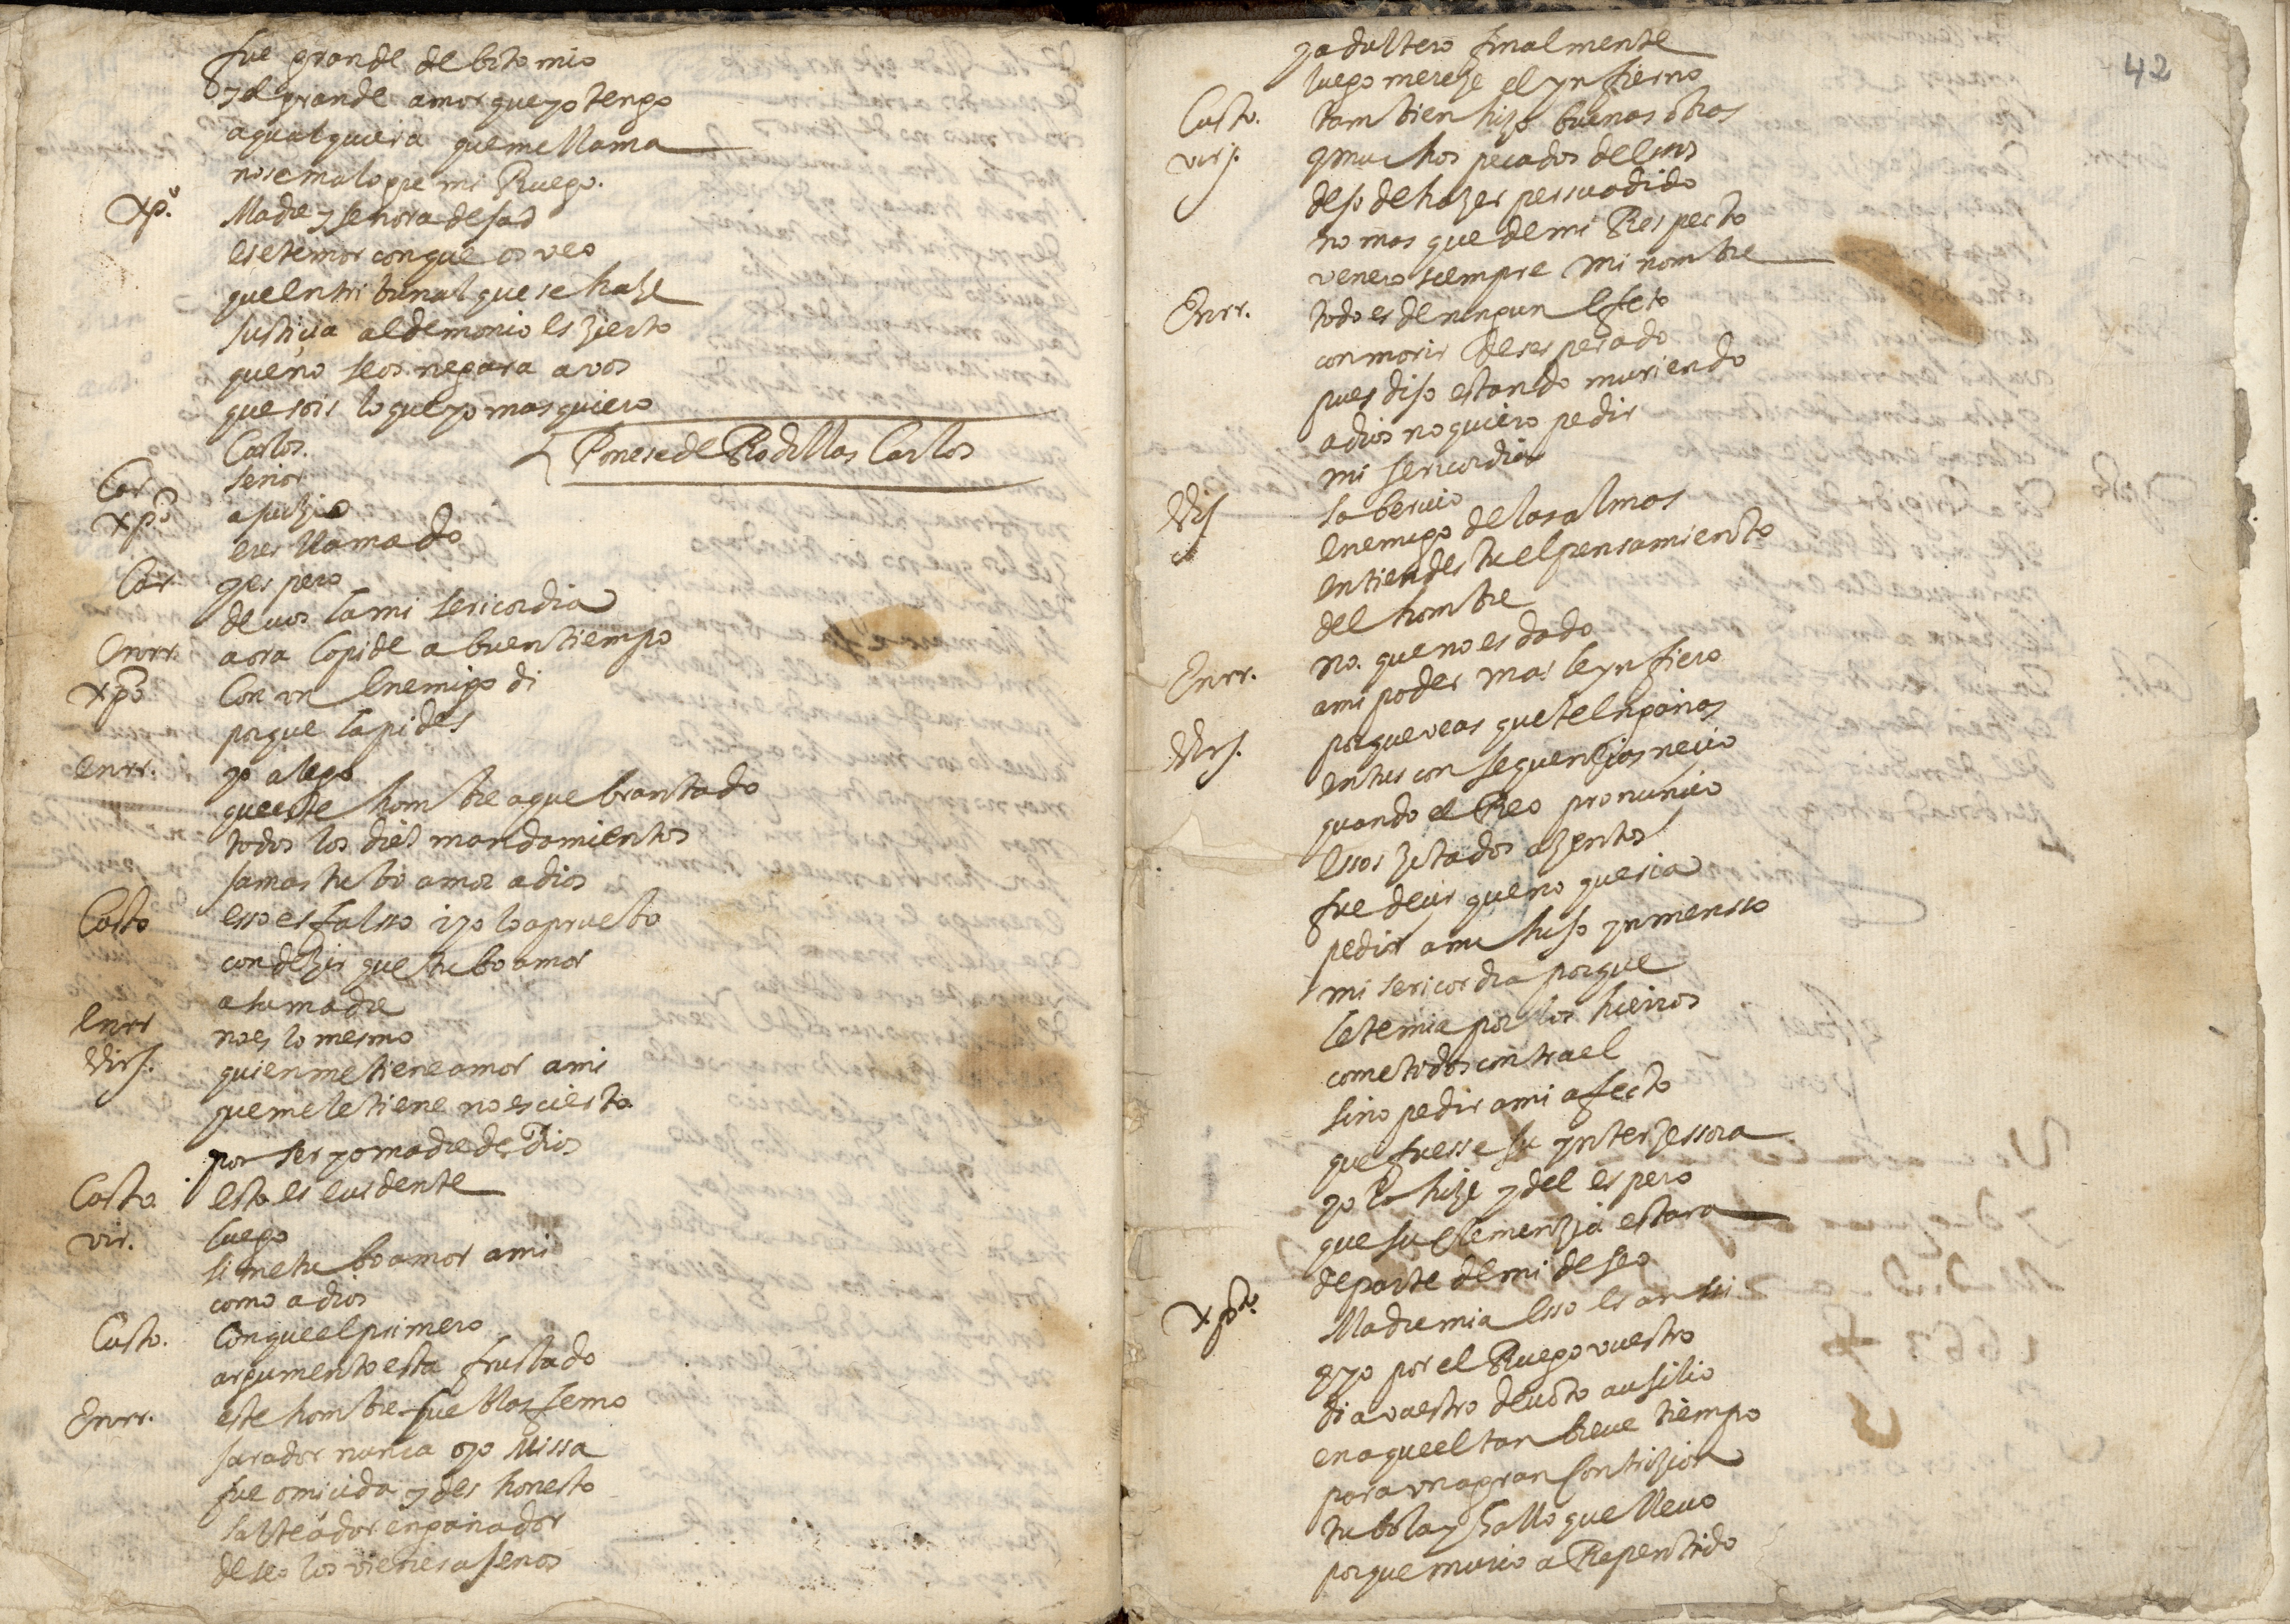 fue grande debito mio
y el grande amor que yo tengo
a qualquiera que me llama
no se malogre mi Ruego.
Xp.º Madre y señora desad
ese temor con que os veo
que en tribunal que se haze
justiçia al demonio es zierto
que no se os negara a vos
que sois lo que yo mas quiero
Carlos. Ponese de Rodillas Carlos
Car señor
Xpº a juizio
eres llamado
Car y espero
de vos la misericordia
Enrr aora la pide a buen tiempo
Xpº Con un enemigo di
porque la pides
enrr. yo alego
que este hombre a quebrantado
todos los diez mandamientos
jamas tubo amor a dios
Custo esso es falsso i yo lo apruebo
con dezir que tubo amor
a su madre
enrr no es lo mesmo
Virj. quien me tiene amor a mi
que me le tiene no es cierto
por ser yo madre de Dios
Custo. esto es euidente
vir. luego
si me tubo amor a mi
como a dios
Custo. Con que el primero
argumento esta frustado
Enrr. este hombre fue blasfemo
jurador nunca oyo Missa
fue omicida y deshonesto
salteador engañador
deseo los vienes ajenos
42
y adultero finalmente
luego mereze el ynfierno
Custo. tambien hizo buenas obras
virj. y muchos pecados de ellos
dejo de hazer persuadido
no mas que de mi Respecto
venero siempre mi nombre
Enrr. todo es de ningun efeto
con morir desesperado
pues dijo estando muriendo
a dios no quiero pedir
misericordia
Virj soberuio
enemigo de las almas
entiendes tu el pensamiento
del hombre
Enrr. no. que no es dado
a mi poder mas le ynfiero
Virj. porque veas que te engañas
en tus consequenzias necio
quando el Reo pronuncio
essos zitados azentos
fue decir que no queria
pedir a mi hijo ynmensso
misericordia porque
le temia por los hierros
cometidos contra el
sino pedir a mi afecto
que fuesse su ynterzessora
yo lo hize y del espero
que su Clemenzia estara
de parte de mi deseo
Xpto. Madre mia esso es ansi
y yo por el Ruego vuestro
di a vuestro deuoto ausilio
en aquel tan breue tiempo
para una gran Contrizion
tubola y hallo que lleuo
porque murio a Repentido